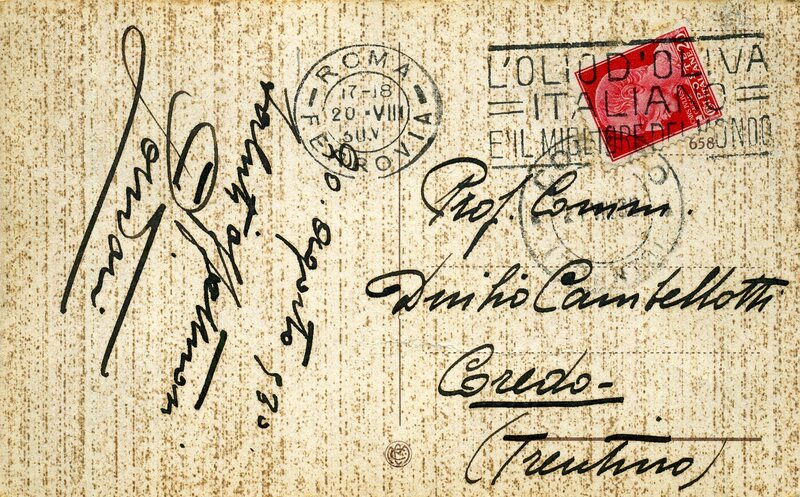 ROMA
17-18
20·VIII
FERROVIA
L'OLIO D'OLIVA
ITALIANO
E' IL MIGLIORE DEL MONDO
658
Prof. Comm.
Duilio Cambellotti
Credo-
(Trentino)
20. Agosto 930
saluti affettuosi